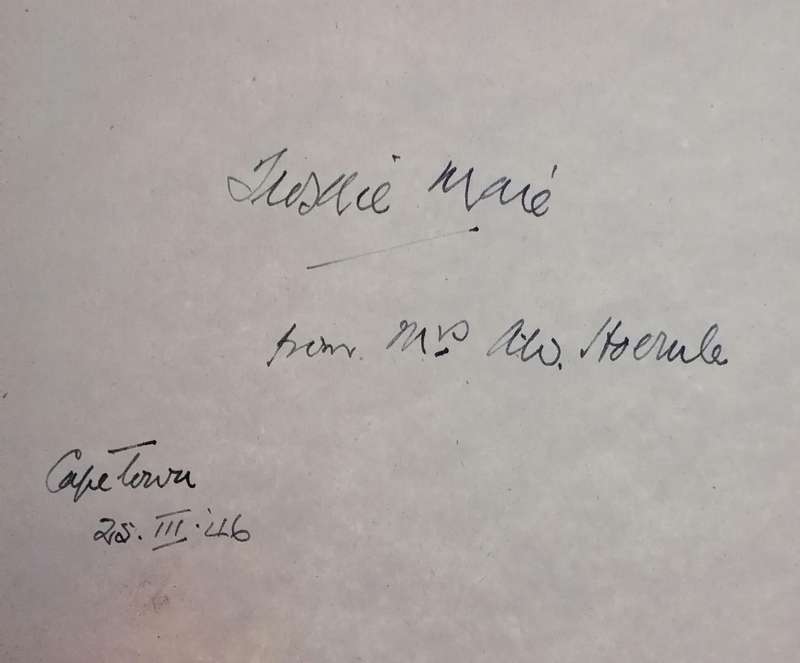 Maré
from Mrs A.W. Hoernlé
Cape Town
25. III. '46